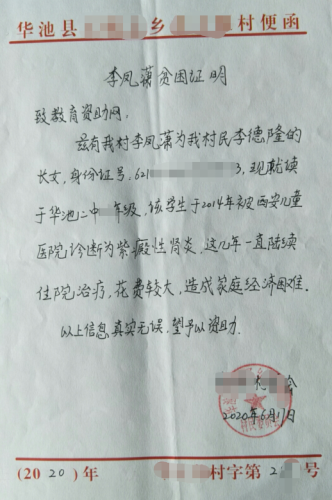 华池县 乡 村便函
李凤潇贫困证明
致教育资助网,
兹有我村李凤潇为我村民李德隆的
长女,身份证号:621 3,现就读
于华池二中 年级,该学生于2014年被西安儿童
医院诊断为紫癜性肾炎,这几年一直陆续
住院治疗,花费较大,造成家庭经济困难.
以上信息真实无误,望予以资助.
会
2020年6月17日
(20 20)年 村字第2 号